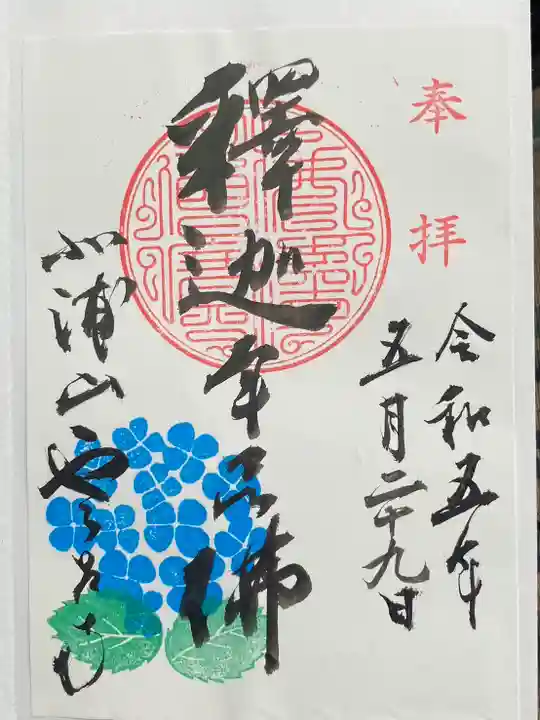 奉拝
令和五年
五月二十九日
釋迦牟尼佛
北浦山